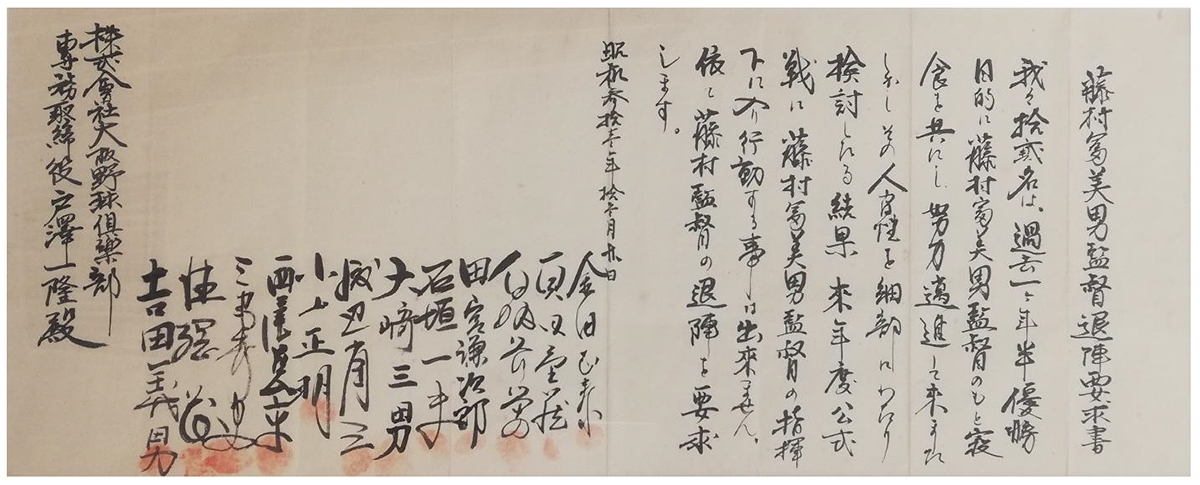 藤村冨美男監督退陣要求書
我々拾弐名は、過去一ヶ年半優勝
目的に藤村冨美男監督のもと寝
食を共にし努力邁進して来ました
しかしその人間性を細部にわたり
検討したる結果 来年度公式
戦に藤村冨美男監督の指揮
下に入り行動する事は出来ません。
依って藤村監督の退陣を要求
します。
昭和参拾壱年拾壱月
金田正泰
真田重蔵
白坂長栄
田宮謙次郎
石垣一夫
大崎三男
渡辺省三
小山正明
西村
三船
徳網茂
吉田義男
株式会社大阪野球倶楽部
専務取締役戸澤一隆殿